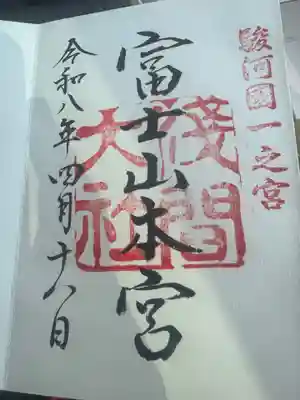 駿河國一之宮
富士山本宮
淺間
大社
令和八年四月十八日